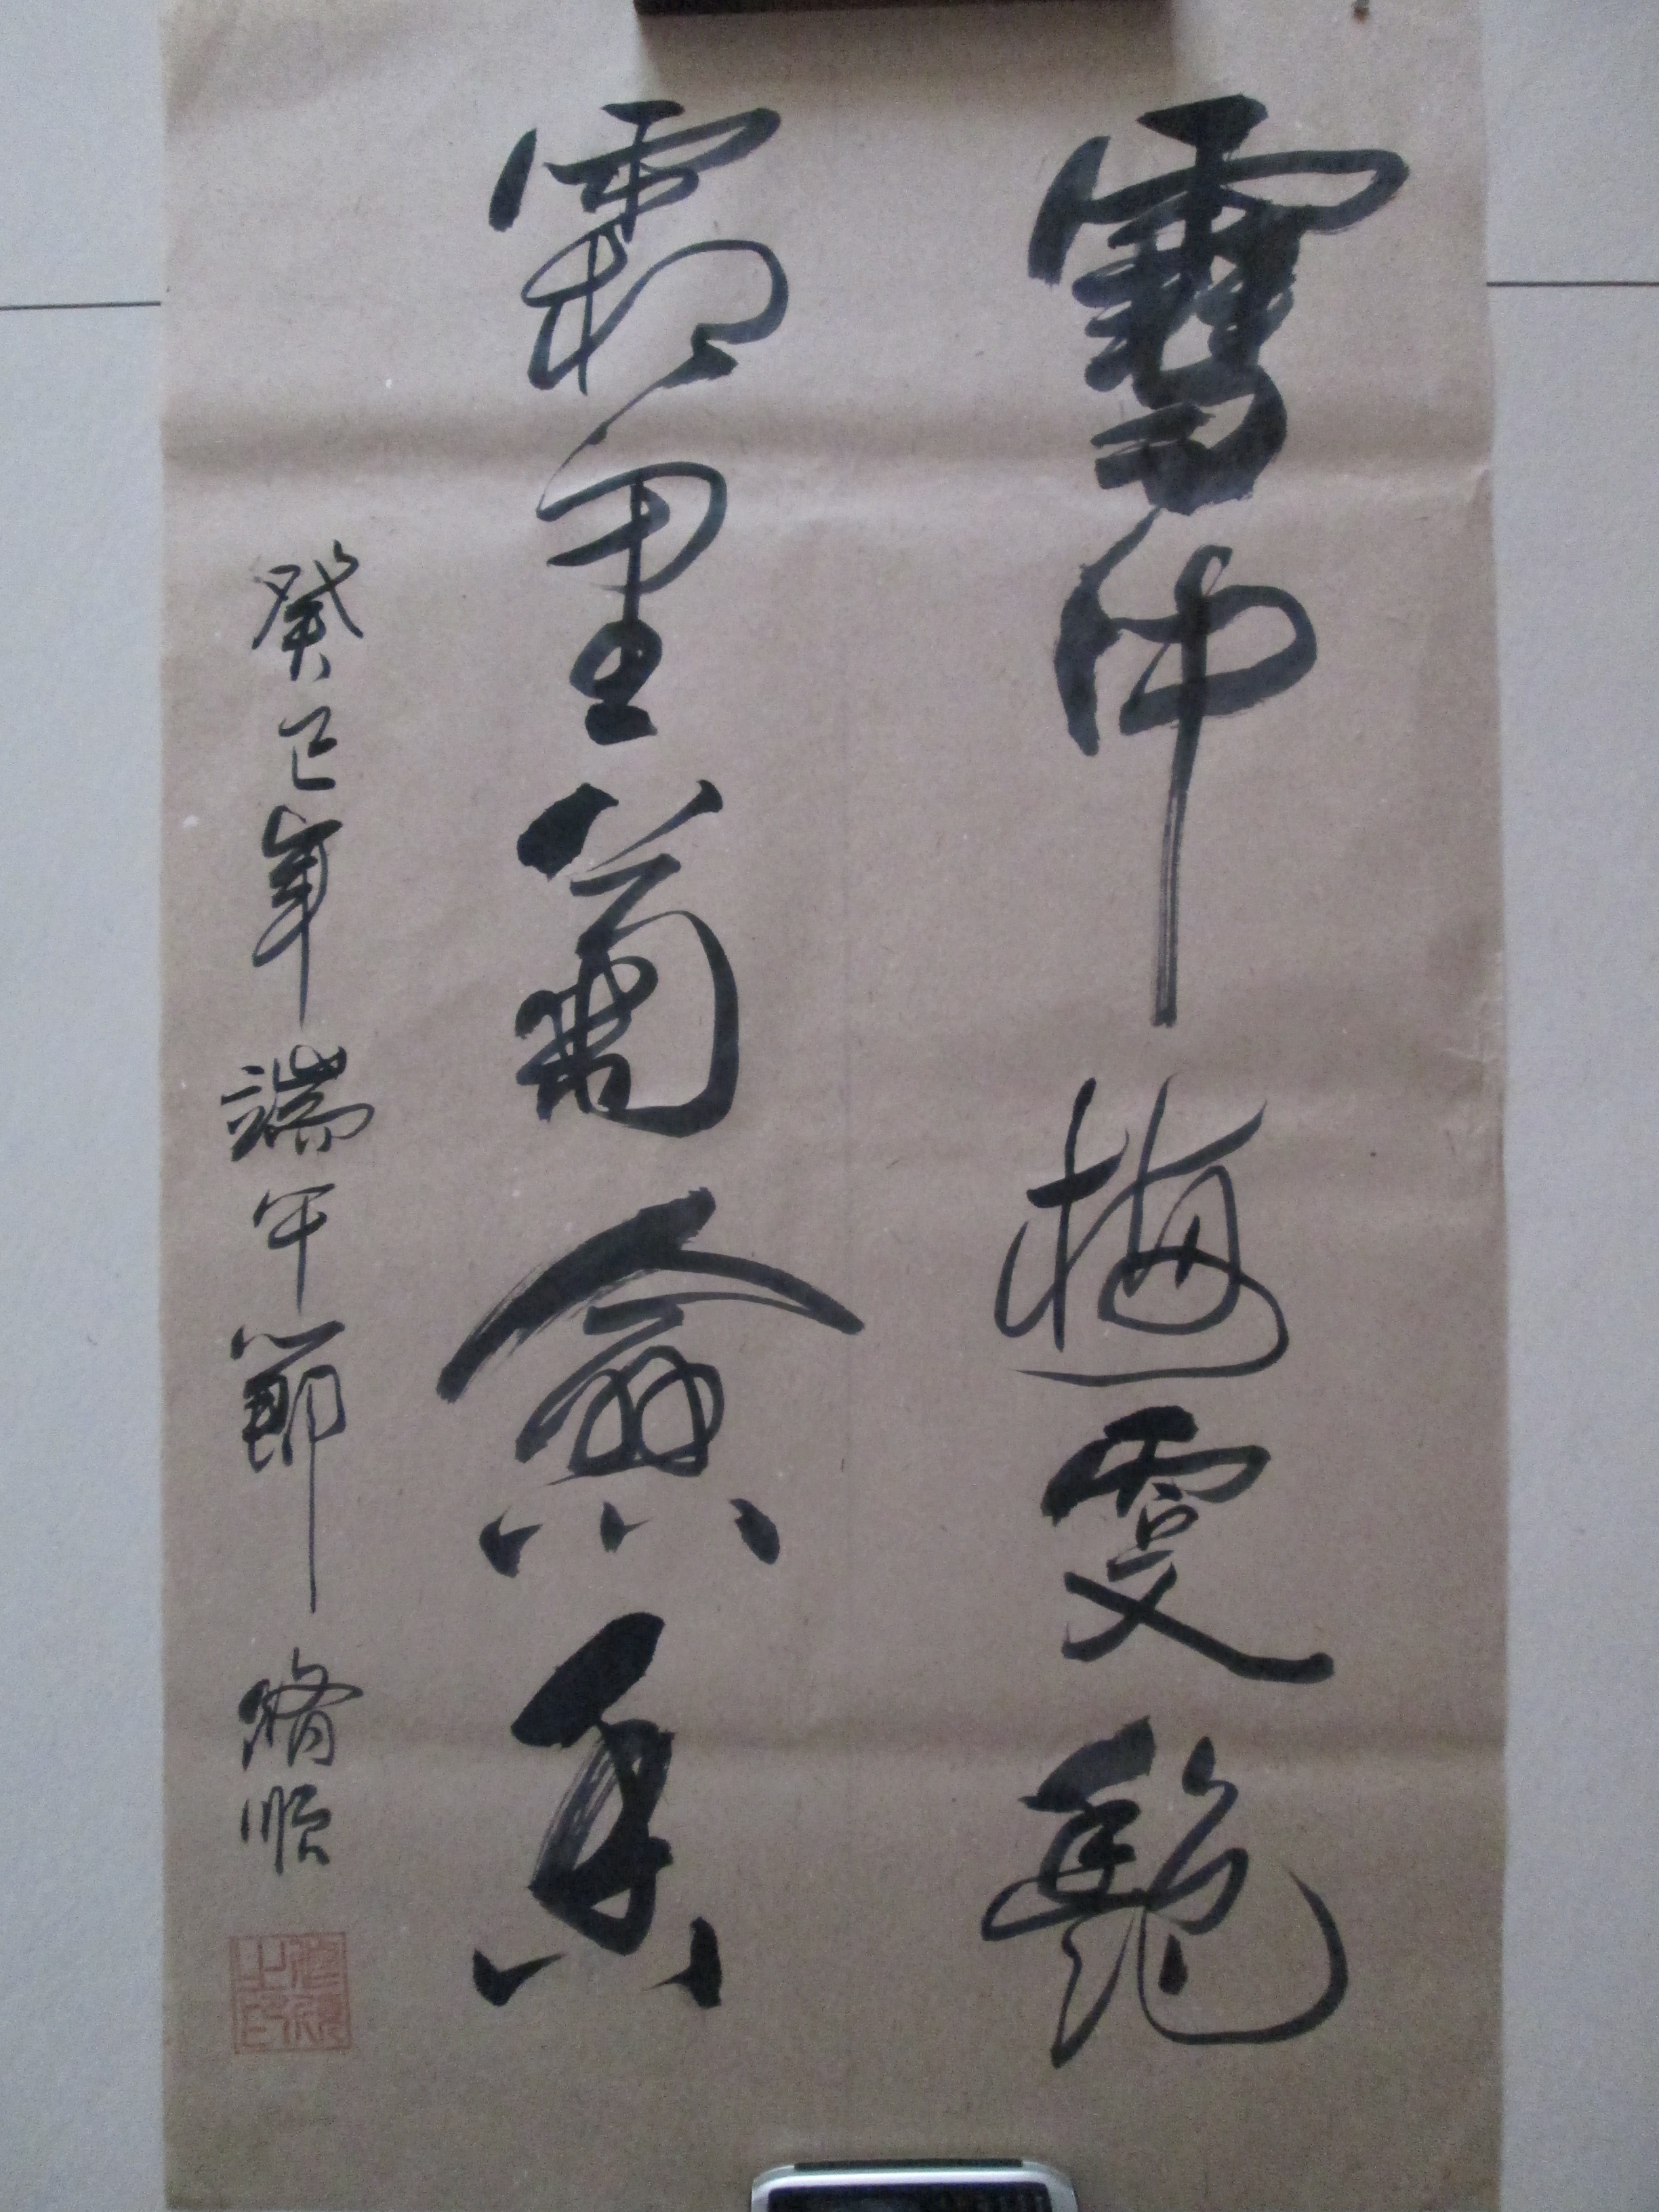 雪中梅更艷
霜里菊愈香
癸巳年端午節 脩順